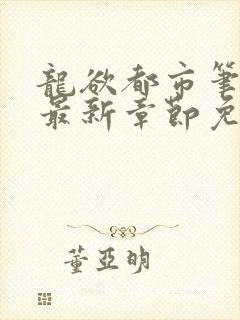 龍欲都市筆
最新章節免
董亞明